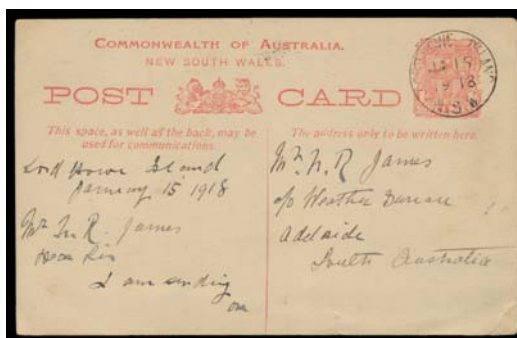 COMMONWEALTH OF AUSTRALIA.
NEW SOUTH WALES.
POST CARD
This space, as well as the back, may be
used for communications.
The address only to be written here.
Lord Howe Island
January 15 1918
Mr. N. R. James
Dear Sir
I am sending
Mr. N. R. James
c/o Weather Bureau
Adelaide
South Australia
ISLAND
JA 15
1918
N.S.W